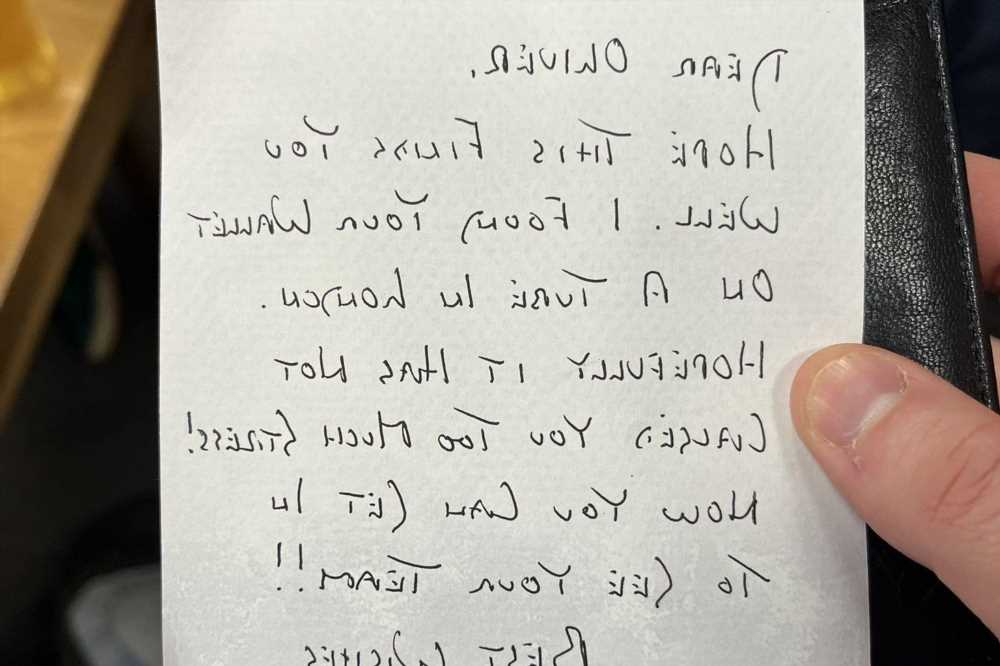 DEAR OLIVER,
HOPE THIS FINDS YOU
WELL. I FOUND YOUR WALLET
ON A TUBE IN LONDON.
HOPEFULLY IT HAS NOT
CAUSED YOU TOO MUCH STRESS!
NOW YOU CAN GET IN
TO SEE YOUR TEAM!!
BEST WISHES